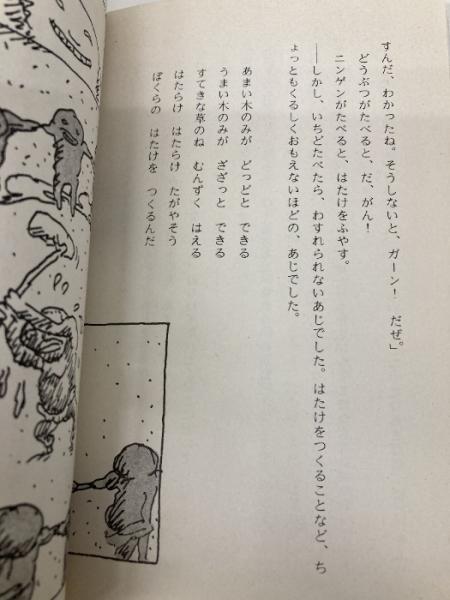 すんだ、わかったね。そうしないと、ガーン！　だぜ。」
どうぶつがたべると、だ、がん！
ニンゲンがたべると、はたけをふやす。
――しかし、いちどたべたら、わすれられないあじでした。はたけをつくることなど、ち
ょっともくるしくおもえないほどの、あじでした。
あまい木のみが　どっどと　できる
うまい木のみが　ざざっと　できる
すてきな草のね　むんずく　はえる
はたらけ　はたらけ　たがやそう
ぼくらの　はたけを　つくるんだ